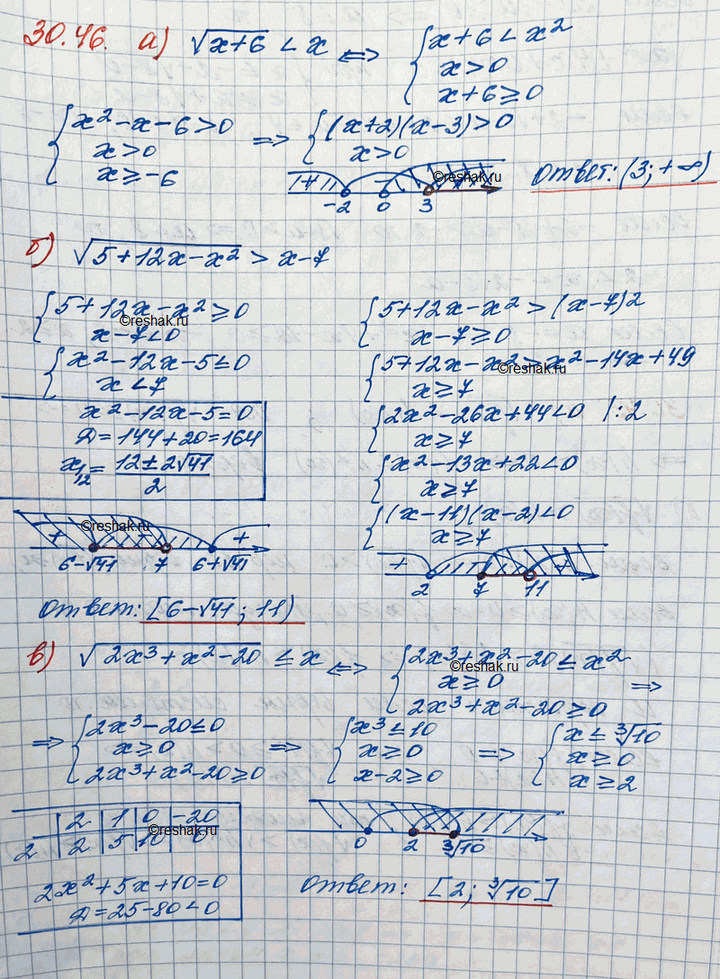 30.46. а) √(x+6) < x ⟺ { x+6 < x²
x > 0
x+6 ≥ 0
{ x²-x-6 > 0
x > 0
x ≥ -6
⟹ { (x+2)(x-3) > 0
x > 0
+ -2 0 3
©reshak.ru
Ответ: (3; +∞)
б) √(5+12x-x²) > x-7
{ 5+12x-x² ≥ 0
x-7 < 0
©reshak.ru
{ x²-12x-5 ≤ 0
x < 7
x²-12x-5=0
Д=144+20=164
x½ = (12±2√41)/2
©reshak.ru
+ - +
6-√41 7 6+√41
{ 5+12x-x² > (x-7)2
x-7 ≥ 0
{ 5+12x-x² > x²-14x+49
x ≥ 7
©reshak.ru
{ 2x²-26x+44 < 0 |:2
x ≥ 7
{ x²-13x+22 < 0
x ≥ 7
{ (x-11)(x-2) < 0
x ≥ 7
+ +
2 7 11
Ответ: [6-√41; 11)
в) √(2x³+x²-20) ≤ x ⟺ { 2x³+x²-20 ≤ x²
x ≥ 0
2x³+x²-20 ≥ 0 ⟹
©reshak.ru
⟹ { 2x³-20 ≤ 0
x ≥ 0
2x³+x²-20 ≥ 0
⟹ { x³ ≤ 10
x ≥ 0
x-2 ≥ 0
⟹ { x ≤ ∛10
x ≥ 0
x ≥ 2
2 1 0 -20
2 2 5 10 0
©reshak.ru
2x²+5x+10=0
Д=25-80<0
0 2 ∛10
Ответ: [2; ∛10]